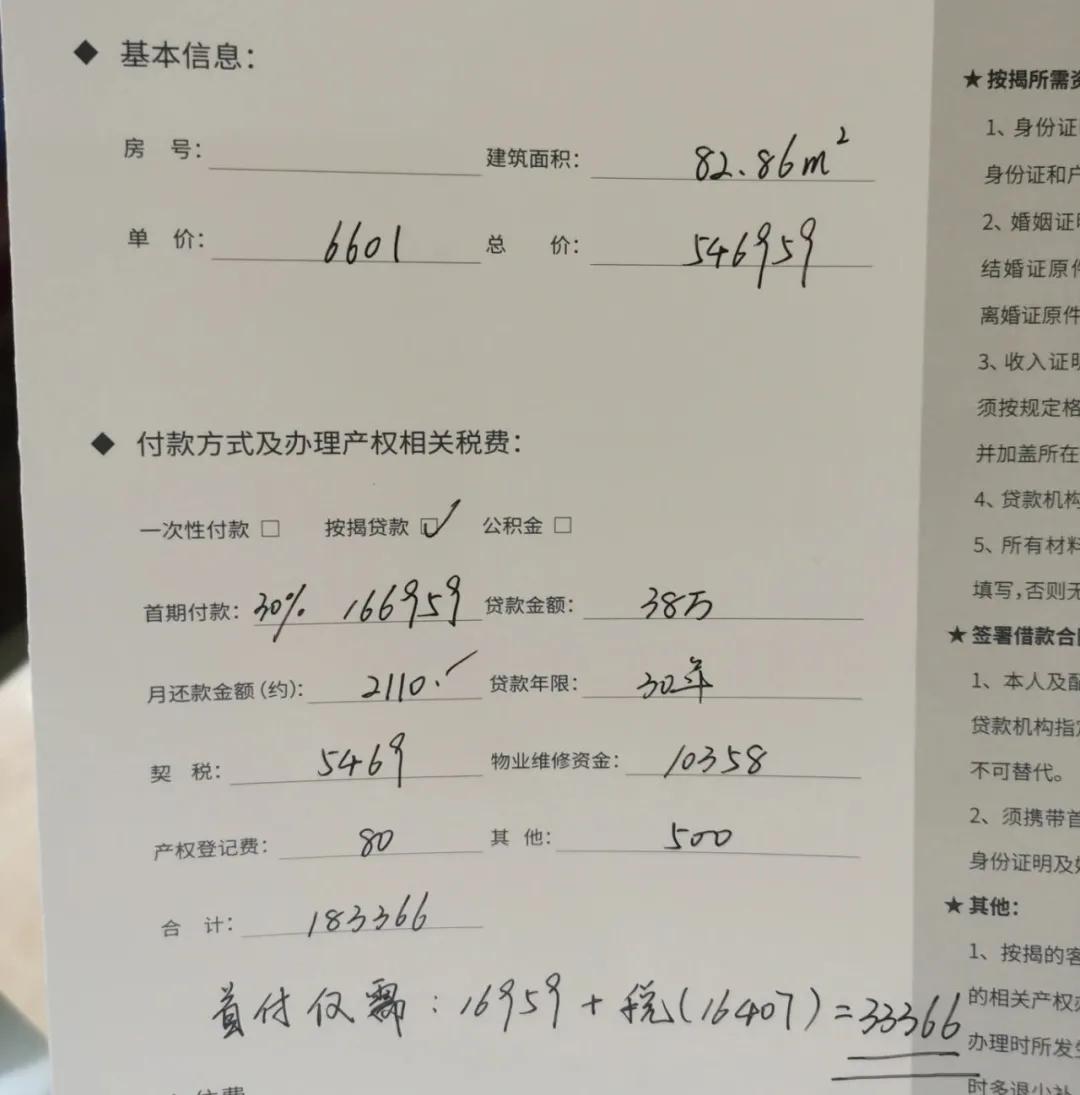 ◆ 基本信息：
房 号：
建筑面积： 82.86m²
单 价： 6601
总 价： 546959
◆ 付款方式及办理产权相关税费：
一次性付款 □ 按揭贷款 ☑ 公积金 □
首期付款： 30% 166959
贷款金额： 38万
月还款金额（约）： 2110.
贷款年限： 30年
契 税： 5469
物业维修资金： 10358
产权登记费： 80
其 他： 500
合 计： 183366
首付仅需：16959 + 税(16407) = 33366
★ 按揭所需
1、身份证
身份证和户
2、婚姻证
结婚证原件
离婚证原件
3、收入证
须按规定格
并加盖所在
4、贷款机构
5、所有材料
填写，否则无
★ 签署借款合
1、本人及配
贷款机构指
不可替代。
2、须携带首
身份证明及
★ 其他：
1、按揭的客
的相关产权
办理时所发生
时多退少补